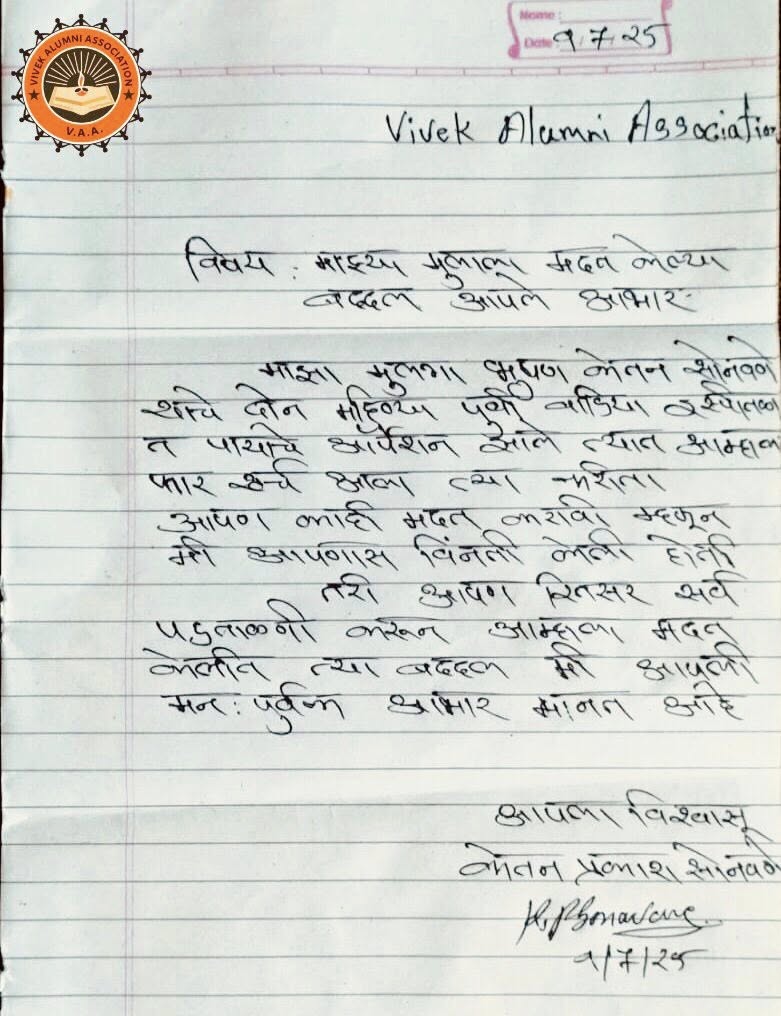 VIVEK ALUMNI ASSOCIATION
V.A.A.
Name :
Date : १.7.२५
Vivek Alumni Association
विषय : माझ्या मुलाला मदत केल्या
बद्दल आपले आभार
माझा मुलगा भुषण केतन सोनवणे
याचे दोन महिन्या पुर्वी वाडिया इस्पितळा
त पायाचे ऑर्पेशन झाले त्यात आम्हाला
फार खर्च आला त्या करीता
आपण काही मदत करावी म्हणून
मी आपणास विनंती केली होती
तरी आपण रितसर सर्व
पडताळणी करून आम्हाला मदत
केलीत त्या बद्दल मी आपली
मन: पुर्वक आभार मानत आहे
आपला विश्वासू
केतन प्रकाश सोनवणे
K.P.Sonavane
१/7/२५